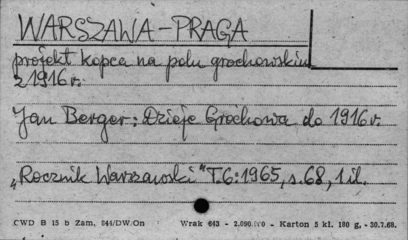 WARSZAWA - PRAGA
projekt kopca na polu grochowskim
z 1916 r.
Jan Berger: Dzieje Grochowa do 1916 r.
„Rocznik Warszawski" T.6: 1965, s. 68, 1 il.
CWD B 15 b Zam. 844/DW.On Wrak 643 - 2.090.000 - Karton 5 kl. 180 g, - 30.7.68.